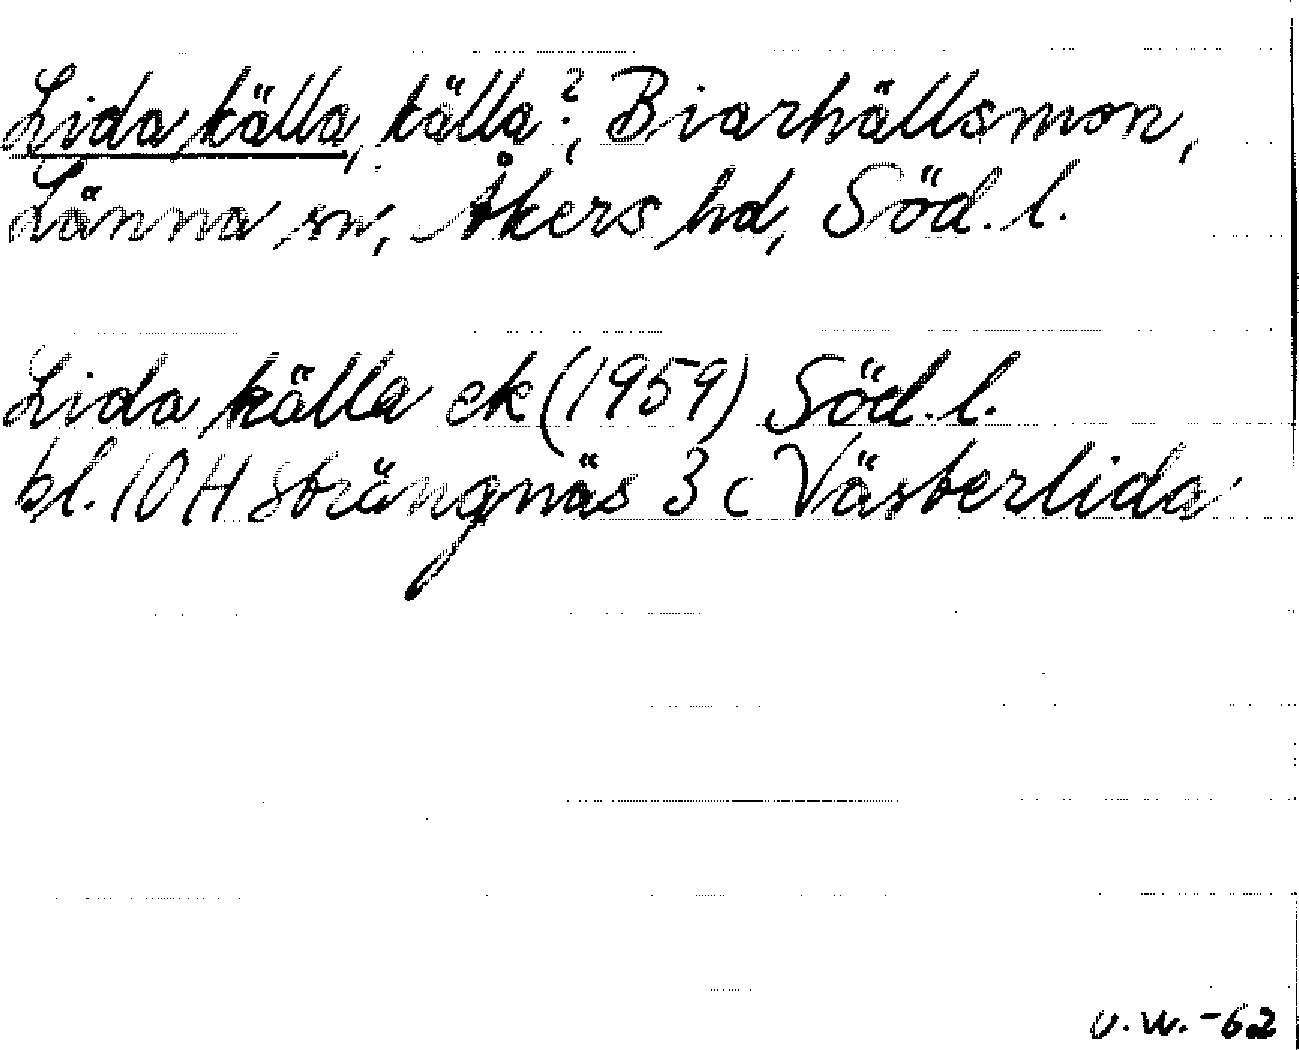 Lida källa, källa?, Biarhällsmon,
Länna sn, Åkers hd, Söd. l.
Lida källa ek (1959) Söd. l.
bl. 10 H Strängnäs 3 c Västerlida
U.W. -62